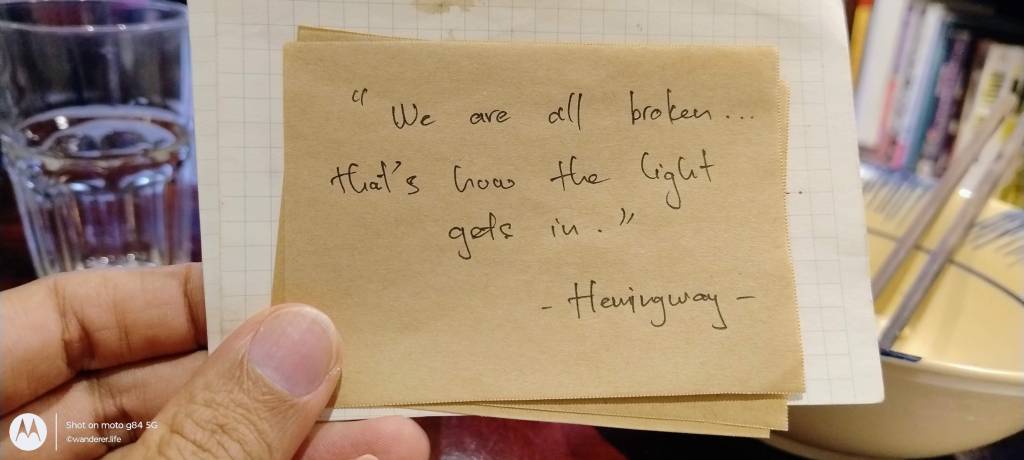 “ We are all broken...
that's how the light
gets in. ”
- Hemingway -
Shot on moto g84 5G
©wanderer.life